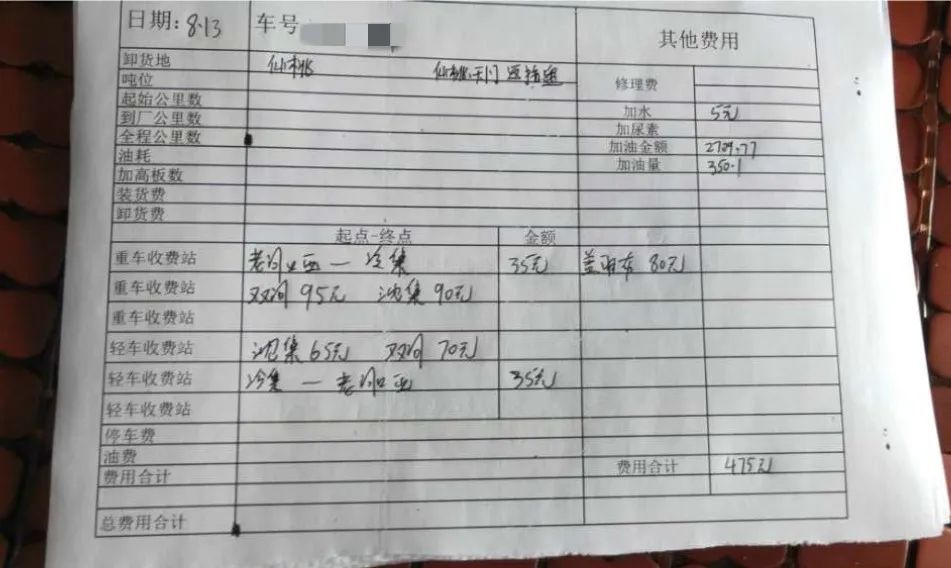 日期: 8.13 车号 其他费用
卸货地 仙桃 仙桃天门
吨位 修理费
起始公里数
到厂公里数 加水 5元
全程公里数 加尿素
油耗 加油金额 2729.77
加高板数 加油量 350.1
装货费
卸货费
起点-终点 金额
重车收费站 老河口西 — 冷集 35元 盖雨布 80元
重车收费站 双沟 95元 集 90元
重车收费站
轻车收费站 集 65元 双沟 70元
轻车收费站 冷集 — 老河口西 35元
轻车收费站
停车费
油费
费用合计 费用合计 475元
总费用合计